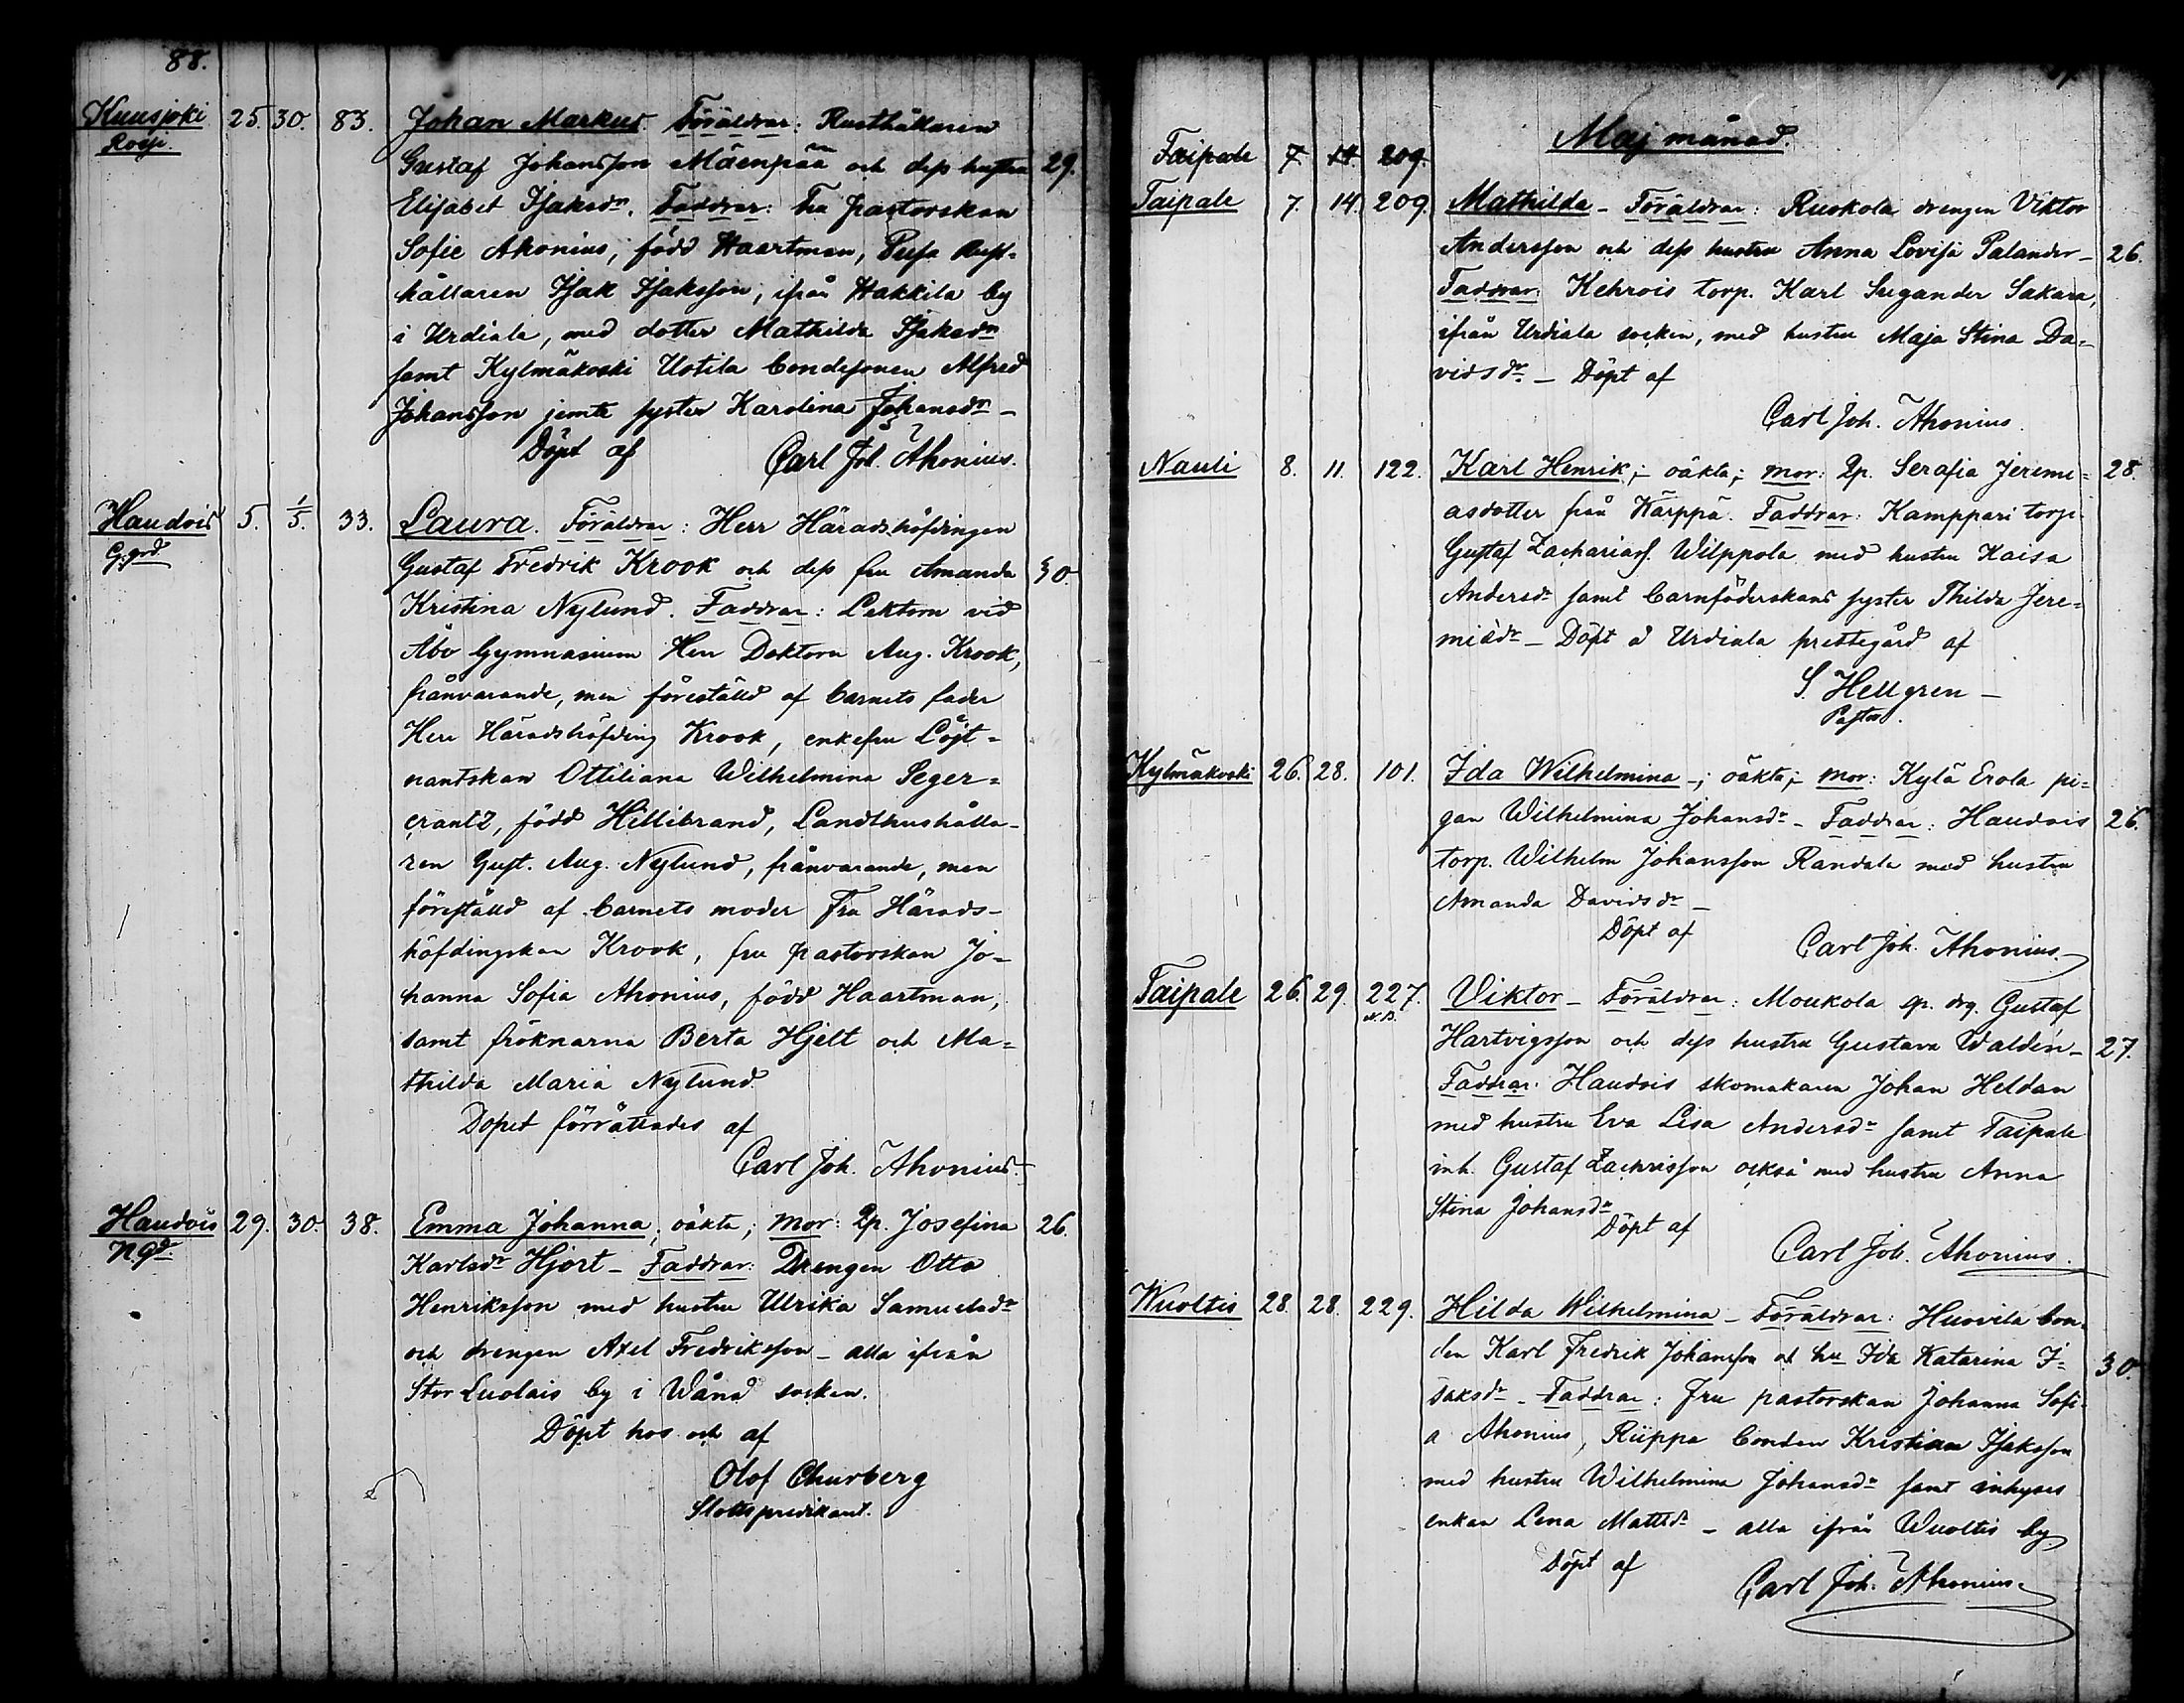 88.
Kuusjoki 25. 30. 83. Johan Markus. Föräldrar: Rusthållaren
Gustaf Johansson Mäenpää och dess hustru 29.
Elisabet Isaksdr. Faddrar: Fru pastorskan
Sofie Ahonius, född Haartman, Rust-
hållaren Isak Isaksson, ifrån Hakkila by
i Urdiala, med dotter Mathilda Isaksdr
samt Kylmäkoski Uotila bondesonen Alfred
Johansson jemte syster Karolina Johansdr –
Döpt af Carl Joh. Ahonius.
Haudois 5. 1/5. 33. Laura. Föräldrar: Herr Häradshöfdingen
G.grd. Gustaf Fredrik Krook och dess fru Amanda 30.
Kristina Nylund. Faddrar: Lektorn vid
Åbo Gymnasium Herr Doktorn Aug. Krook,
frånvarande, men föreställd af barnets fader
Herr Häradshöfding Krook, enkefru Löjt=
nantskan Ottiliana Wilhelmina Seger=
crantz, född Hillibrand, Landthushålla-
ren Gust. Aug. Nylund, frånvarande, men
föreställd af barnets moder Fru Härads-
höfdingskan Krook, fru pastorskan Jo-
hanna Sofia Ahonius, född Haartman,
samt fröknarna Berta Hjelt och Ma=
thilda Maria Nylund
Dopet förrättades af
Carl Joh. Ahonius.
Haudois 29. 30. 38. Emma Johanna, oäkta; mor: Qp. Josefina 26.
N.gd. Karlsdr Hjort – Faddrar: Drengen Otto
Henriksson med hustru Ulrika Samuelsdr
och drengen Axel Fredriksson – alla ifrån
Stor Luolais by i Wånå socken.
Döpt hos och af
Olof Churberg
Slottspredikant.
Maj månad.
Taipale 7. 14. 209.
Taipale 7. 14. 209. Mathilda – Föräldrar: Ruokola drengen Viktor
Andersson och dess hustru Anna Lovisa Palander – 26.
Faddrar: Kehrois torp. Karl Sugander Sakara,
ifrån Urdiala socken, med hustru Maja Stina Da=
vidsdr. – Döpt af
Carl Joh. Ahonius.
Nauli 8. 11. 122. Karl Henrik; – oäkta; mor: Qp. Serafia Jeremi= 28.
asdotter från Kärppä. Faddrar: Kamppari torp.
Gustaf Zachariass. Wilppola med hustru Kaisa
Andersdr samt barnföderskans syster Thilda Jere=
miædr – Döpt å Urdiala prestegård af
S. Hellgren –
Pastor.
Kylmäkoski 26. 28. 101. Ida Wilhelmina –; oäkta; – mor: Kylä Erola pi=
gan Wilhelmina Johansdr – Faddrar: Haudois 26.
torp. Wilhelm Johansson Randala med hustru
Amanda Davidsdr –
Döpt af
Carl Joh. Ahonius.
Taipale 26. 29. 227. Viktor – Föräldrar: Moukola sp. drg. Gustaf
N.B. Hartvigsson och dess hustru Gustava Waldén – 27.
Faddrar: Haudois skomakaren Johan Heldán
med hustru Eva Lisa Andersdr samt Taipale
inh. Gustaf Zachrisson också med hustru Anna
Stina Johansdr
Döpt af
Carl Joh. Ahonius.
Wuoltis 28. 28. 229. Hilda Wilhelmina – Föräldrar: Huovila bon=
den Karl Fredrik Johansson och hu Ida Katarina I= 30.
saksdr – Faddrar: Fru pastorskan Johanna Sofi=
a Ahonius, Riippa bonden Kristian Isaksson
med hustru Wilhelmina Johansdr samt inhyses
enkan Lena Mattsdr – alla ifrån Wuoltis by
Döpt af
Carl Joh. Ahonius.